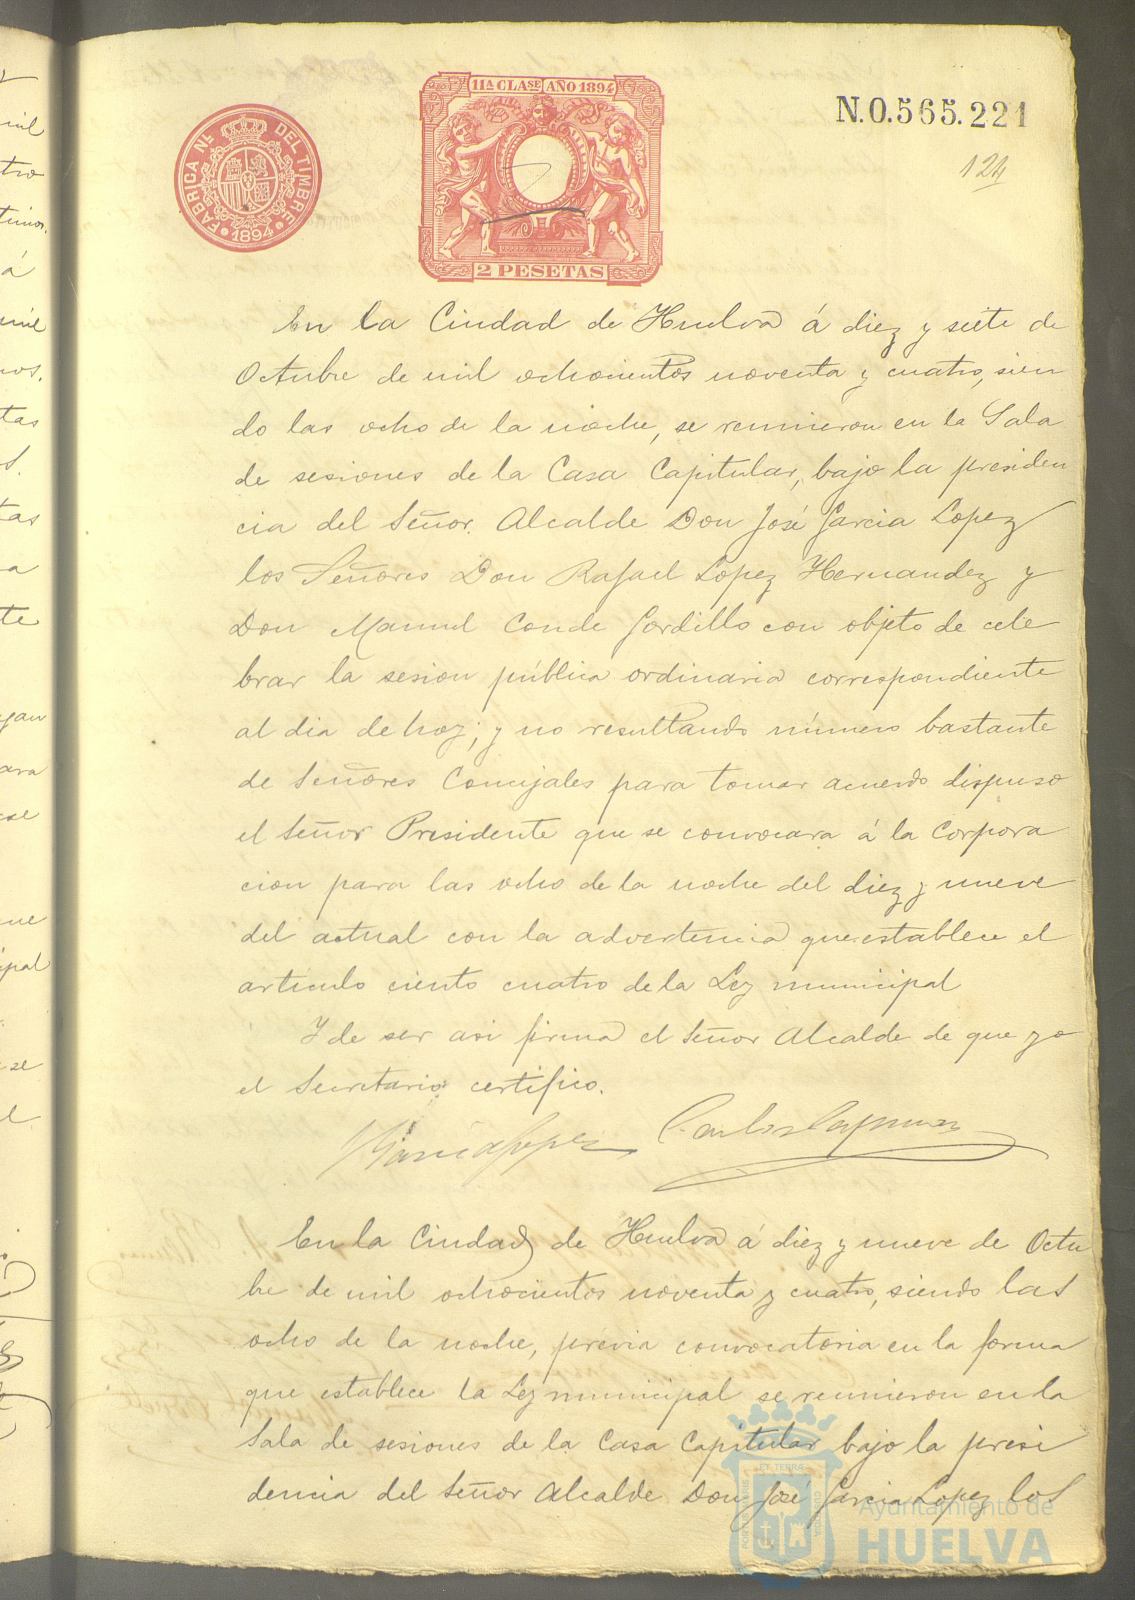 11ª CLASE AÑO 1894
FABRICA NL. DEL TIMBRE
1894
2 PESETAS
N.0.565.221
124
En la Ciudad de Huelva á diez y siete de
Octubre de mil ochocientos noventa y cuatro, sien
do las ocho de la noche, se reunieron en la Sala
de sesiones de la Casa Capitular, bajo la presiden
cia del Señor Alcalde Don José Garcia Lopez
los Señores Don Rafael Lopez Hernandez y
Don Manuel Conde Gordillo con objeto de cele
brar la sesion pública ordinaria correspondiente
al dia de hoy; y no resultando número bastante
de Señores Concejales para tomar acuerdo dispuso
el Señor Presidente que se convocara á la Corpora
cion para las ocho de la noche del diez y nueve
del actual con la advertencia que establece el
articulo ciento cuatro de la Ley municipal
Y de ser asi firma el Señor Alcalde de que yo
el Secretario certifico.
Garcia Lopez
En la Ciudad de Huelva á diez y nueve de Octu
bre de mil ochocientos noventa y cuatro, siendo las
ocho de la noche, previa convocatoria en la forma
que establece la Ley municipal se reunieron en la
Sala de sesiones de la Casa Capitular bajo la presi
dencia del Señor Alcalde Don José Garcia Lopez los
Ayuntamiento de
HUELVA